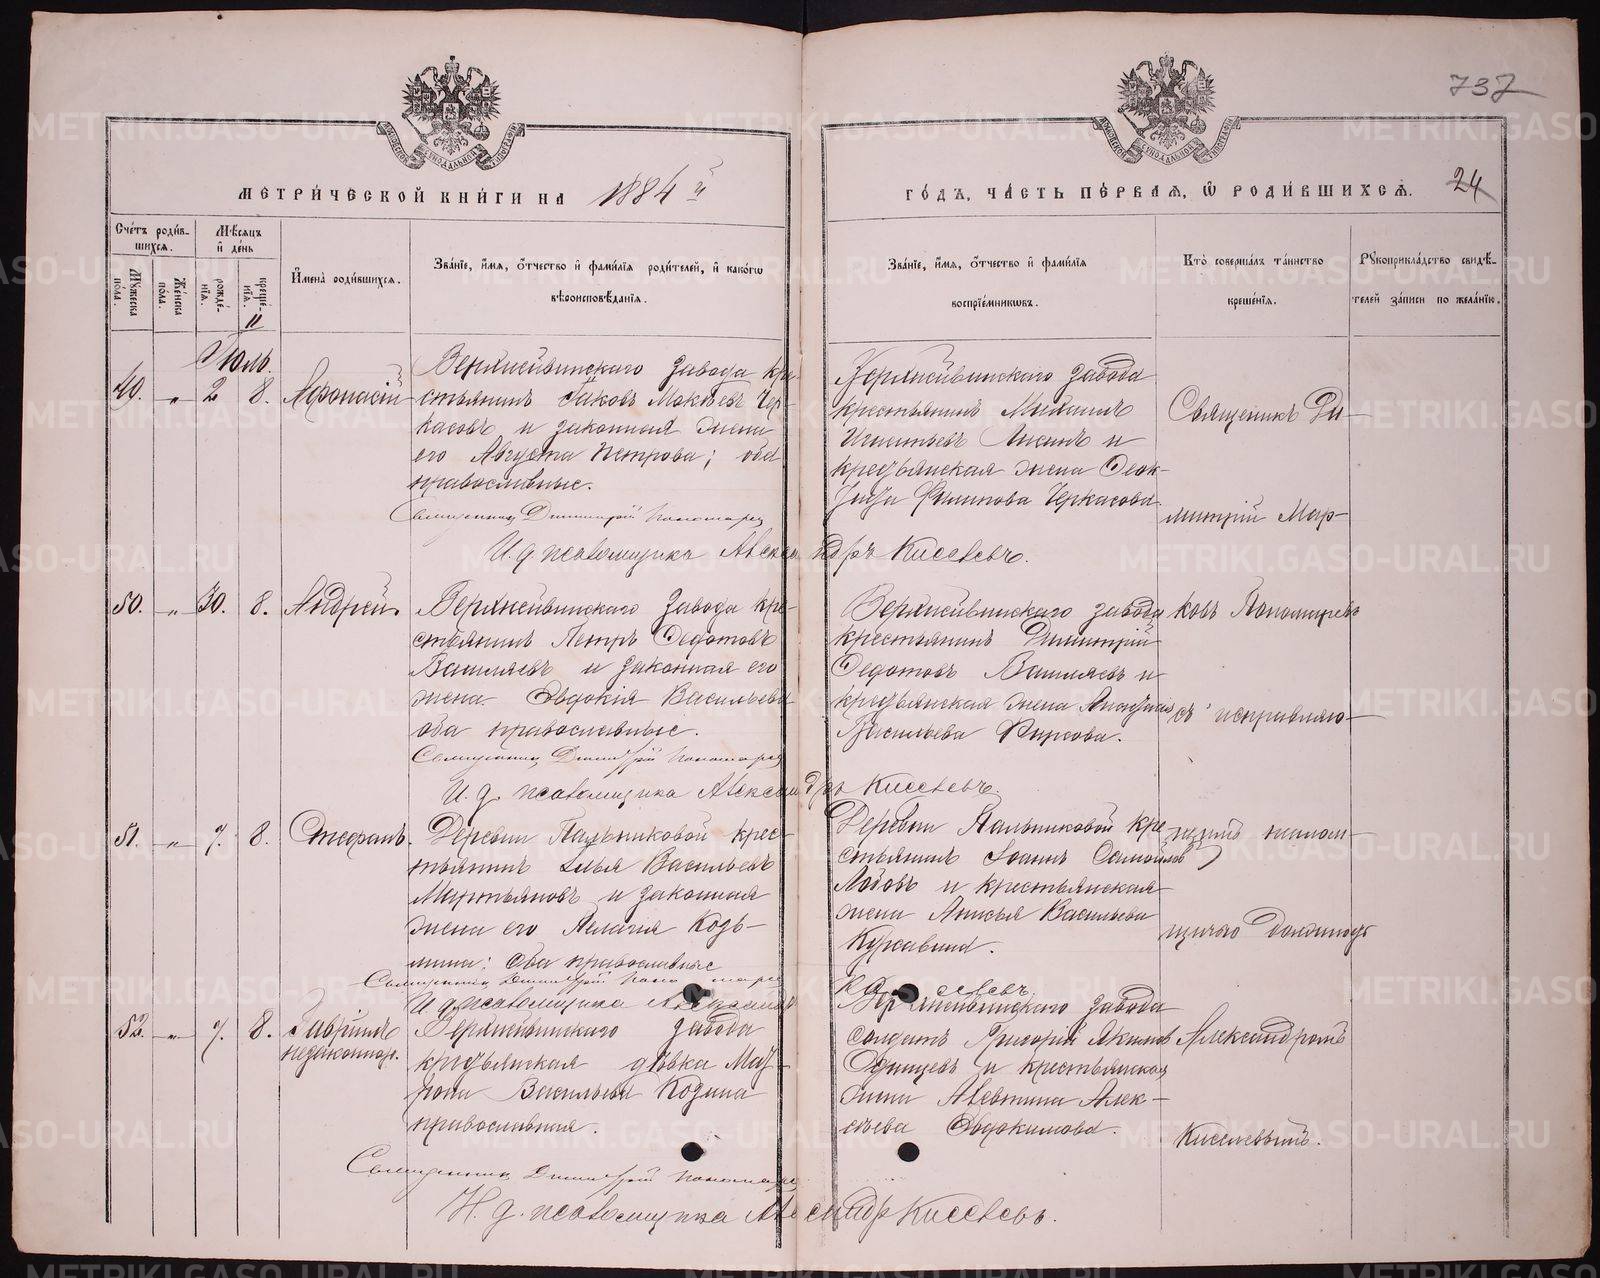 737
МЕТРИЧЕСКОЙ КНИГИ НА 1884 й
ГОДЪ, ЧАСТЬ ПЕРВАЯ, Ѽ РОДИВШИХСЯ. 24
Счетъ родив-
шихся.
Мѣсяцъ
и день
Мужеска
пола.
Женска
пола.
рожде-
нія.
креще-
нія.
Имена родившихся.
Званіе, имя, отчество и фамилія родителей, и какогѡ
вѣроисповѣданія.
Званіе, имя, отчество и фамилія
воспріемникѡвъ.
Кто совершалъ таинство
крещенія.
Рукоприкладство свидѣ-
телей записи по желанію.
Іюль.
49. „ 2 8. Афонасій
Верхнейвинскаго завода кре-
стьянинъ Іаковъ Мокѣевъ Чер-
касовъ и законная жена
его Августа Петрова; оба
православные.
Священникъ Димитрій Пономаревъ
И. д. псаломщика Александръ Киселевъ.
Верхнейвинскаго завода
крестьянинъ Михаилъ
Игнатьевъ Лисинъ и
крестьянская жена Ѳеок-
тиста Филипова Черкасова.
50. „ 30. 8. Андрей.
Верхнейвинскаго завода кре-
стьянинъ Петръ Ѳедотовъ
Вашляевъ и законная его
жена Евдокія Васильева
оба православные.
Священникъ Димитрій Пономаревъ
И. д. псаломщика Александръ Киселевъ.
Верхнейвинскаго завода
крестьянинъ Димитрій
Ѳедотовъ Вашляевъ и
крестьянская жена
Васильева Фирсова.
51. „ 7. 8. Стефанъ.
Деревни Пальниковой крес-
тьянинъ Илья Васильевъ
Мартьяновъ и законная
жена его Пелагія Козь-
мина: Оба православные
Священникъ Димитрій Пономаревъ
И. д. псаломщика Александръ Киселевъ.
Деревни Пальниковой кре-
стьянинъ Іоаннъ Самойловъ
Лобовъ и крестьянская
жена Анисья Васильева
52. „ 7. 8. Гавріилъ
незаконнор.
Верхнейвинскаго завода
крестьянская дѣвка Мат-
рона Васильева Козина
православная.
Священникъ Димитрій Пономаревъ
И. д. псаломщика Александръ Киселевъ.
Верхнейвинскаго завода
солдатъ Григорій Акимовъ
Одинцевъ и крестьянская
жена Алевтина Алек-
сѣева Евдокимова.
Священникъ Ди-
митрій Мар-
ковъ Пономаревъ
съ исправляю-
щимъ псалом-
щичью должность
Александромъ
Киселевымъ.
METRIKI.GASO-URAL.RU